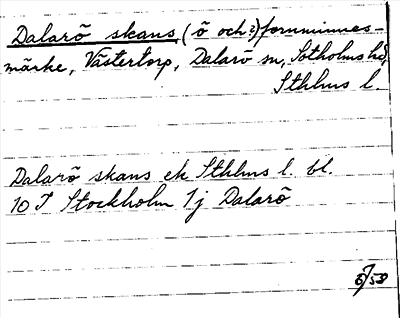 Dalarö skans, (ö och?) fornminnes-
märke, Västertorp, Dalarö sn, Sotholms hd,
Sthlms l.
Dalarö skans ek Sthlms l. bl.
10 I Stockholm 1j Dalarö